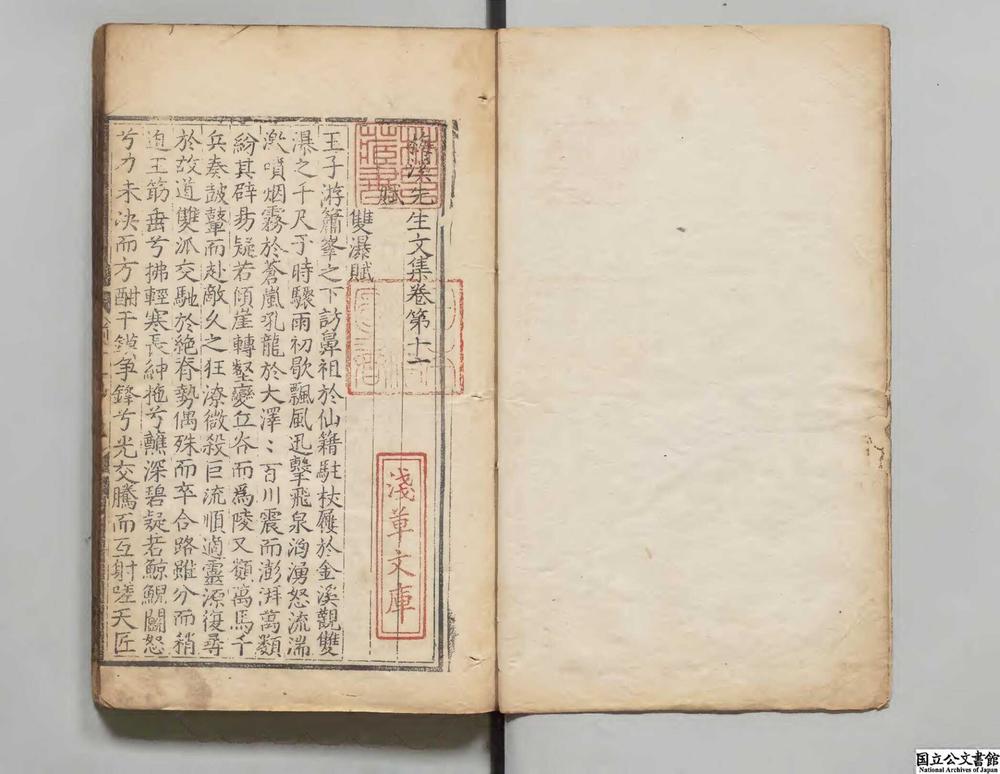 先生文集卷第十一
賦
雙瀑賦
王子游簫峯之下訪鼻祖於仙籍駐杖屨於金溪觀雙
瀑之千尺于時驟雨初歇飄風迅擊飛泉洶湧怒流湍
激噴烟霧於蒼嵐吼龍於大澤：百川震而澎湃萬纇
紛其辟易疑若傾崖轉壑變丘谷而爲陵又纇萬馬千
兵奏鼓鼙而赴敵久之狂潦微殺巨流順適靈源復尋
於故道雙派交馳於絶脊勢偶殊而卒合路雖分而稍
迫玉筯垂兮拂輕寒長紳拖兮蘸深碧疑若鯨鯢鬪怒
兮力未决而方酣干鏌争鋒兮光交騰而互射嗟天匠
淺草文庫
国立公文書館
National Archives of Japan